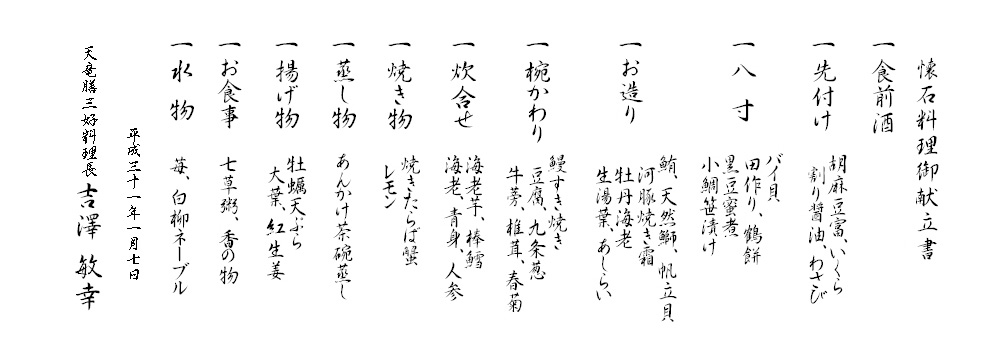 懐石料理御献立書
一 食前酒
一 先付け
胡麻豆富、いくら
割り醤油、わさび
一 八寸
バイ貝
田作り、鶴餅
黒豆蜜煮
小鯛笹漬け
一 お造り
鮪、天然鰤、帆立貝
河豚焼き霜
牡丹海老
生湯葉、あしらい
一 椀かわり
鰻すき焼き
豆腐、九条葱
牛蒡、椎茸、春菊
一 炊合せ
海老芋、棒鱈
海老、青身、人参
一 焼き物
焼きたらば蟹
レモン
一 蒸し物
あんかけ茶碗蒸し
一 揚げ物
牡蠣天ぷら
大葉、紅生姜
一 お食事
七草粥、香の物
一 水物
苺、白柳ネーブル
平成三十一年一月七日
天竜膳三好料理長 吉澤 敏幸